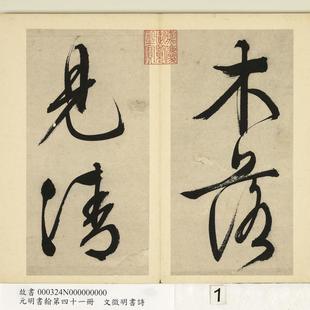 木落
見清
故書 000324N000000000
元明書翰第四十一冊 文徵明書詩
1